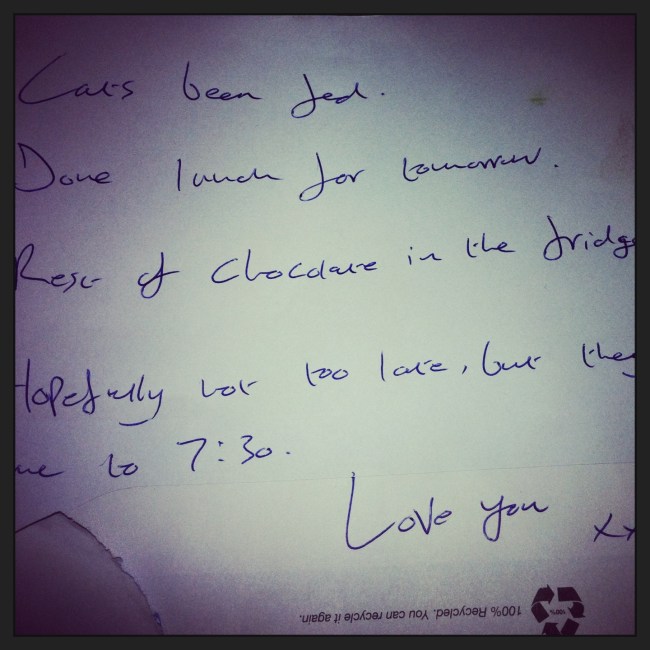 Cats been fed.
Done lunch for tomorrow.
Rest of Chocolate in the fridge
Hopefully not too late, but they
me to 7:30.
Love you xx
100% Recycled. You can recycle it again.
100%